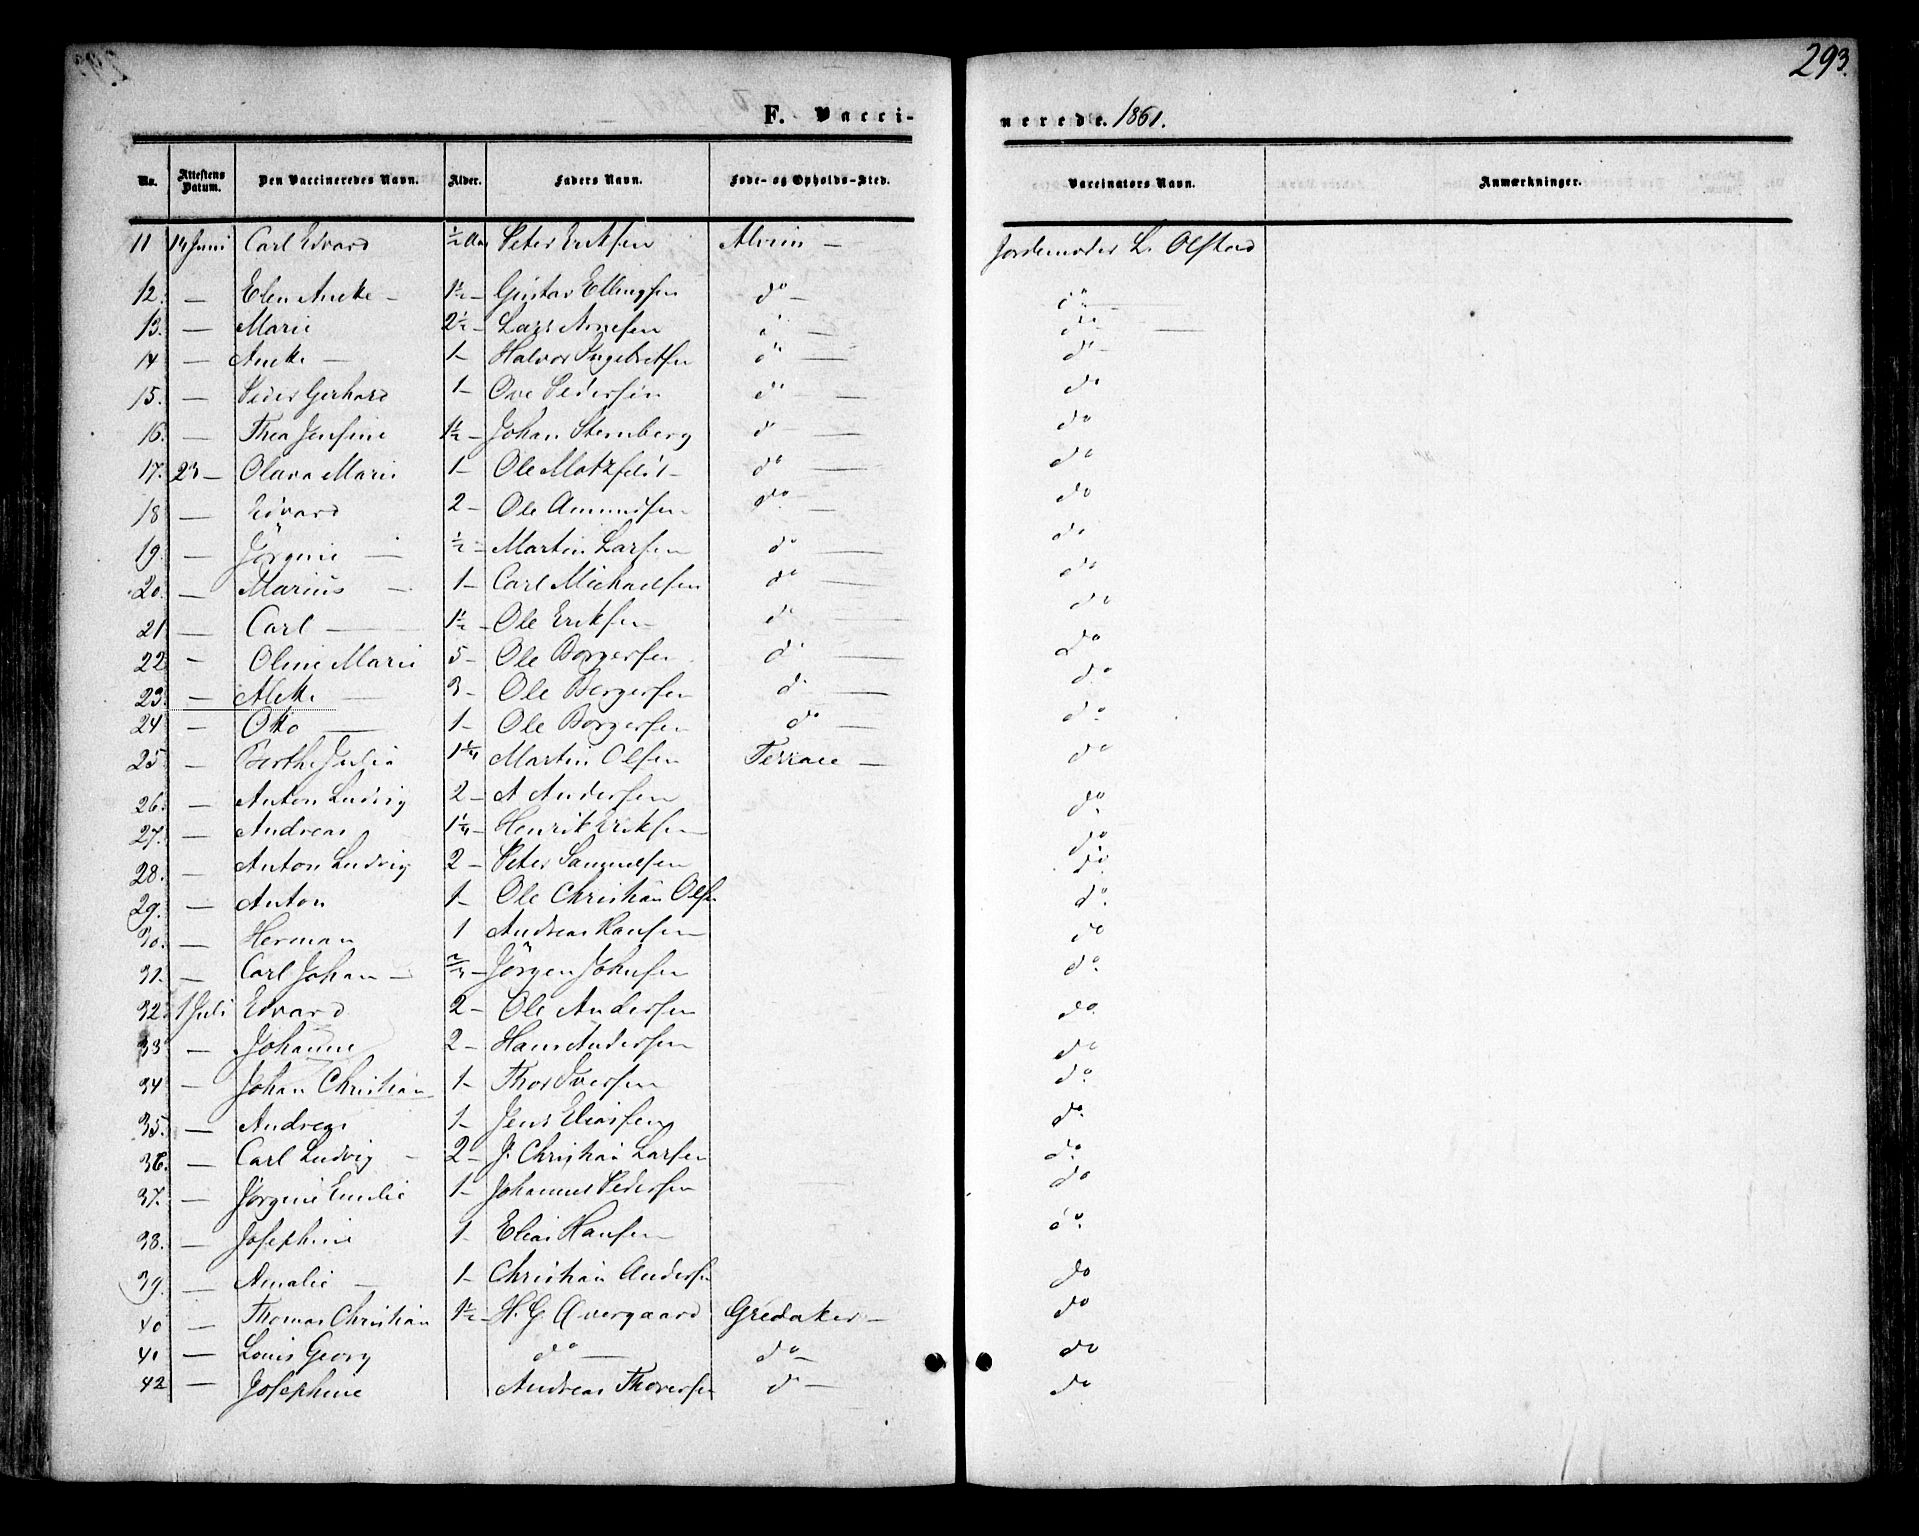 293.
F. Vacci-nerede. 1861.
No. Attestens Datum. Den Vaccineredes Navn. Alder. Faders Navn. Føde- og Opholds-Sted. Vaccinatørs Navn. Anmærkninger.
11 14 Juni Carl Edvard ½ Aar Peter Eriksen Alvim — Jordemoder L. Olstad
12. — Elen Anette — 1½ — Gustav Ellingsen do — do
13. — Marie 2½ — Lars Arnesen do — do —
14 — Anette — 1 — Halvor Ingebretsen do — do —
15. — Peder Gerhard 1 — Ove Pedersen do — do
16. — Thea Josefine 1½ — Johan Sternberg do — do
17. 23 — Olava Marie 1 — Ole Motzfeldt — do — do
18 — Edvard 2 — Ole Amundsen do. — do
19. — Jörgine — ½ — Martin Larsen do — do
20. — Marius — 1 — Carl Michaelsen do — do
21 — Carl — 1½ — Ole Eriksen do — do
22 — Oline Marie 5 — Ole Borgersen do — do
23. — Alette — 3 — Ole Borgersen do — do
24 — Otto — 1 — Ole Borgersen do — do
25 — Berthe Julia 1¼ Martin Olsen — do
26. — Anton Ludvig 2 — A Andersen do
27. — Andreas 1¼ — Henrik Eriksen do
28. — Anton Ludvig 2 — Peter Samuelsen do
29. — Anton 1 — Ole Christian Olsen do
30. — Herman 1 Andreas Hansen do
31. — Carl Johan — ¾ — Jörgen Johnsen do
32. 1 Juli Edvard 2 — Ole Andersen do
33 — Johanne 2 — Hans Andersen do
34 — Johan Christian 1 — Thor Iversen do
35. — Andreas 1 — Jens Eliassen do
36. — Carl Ludvig — 2 — J. Christian Larsen do
37. — Jörgine Emilie 1 — Johannes Pedersen do
38. — Josephine 1 — Elias Hansen do
39. — Amalie — 1 — Christian Andersen do
40 — Thomas Christian 1½ — H. G Overgaard Gredaker — do
41 — Louis Georg do — do — do
42 — Josephine Andreas Thoresen do — do